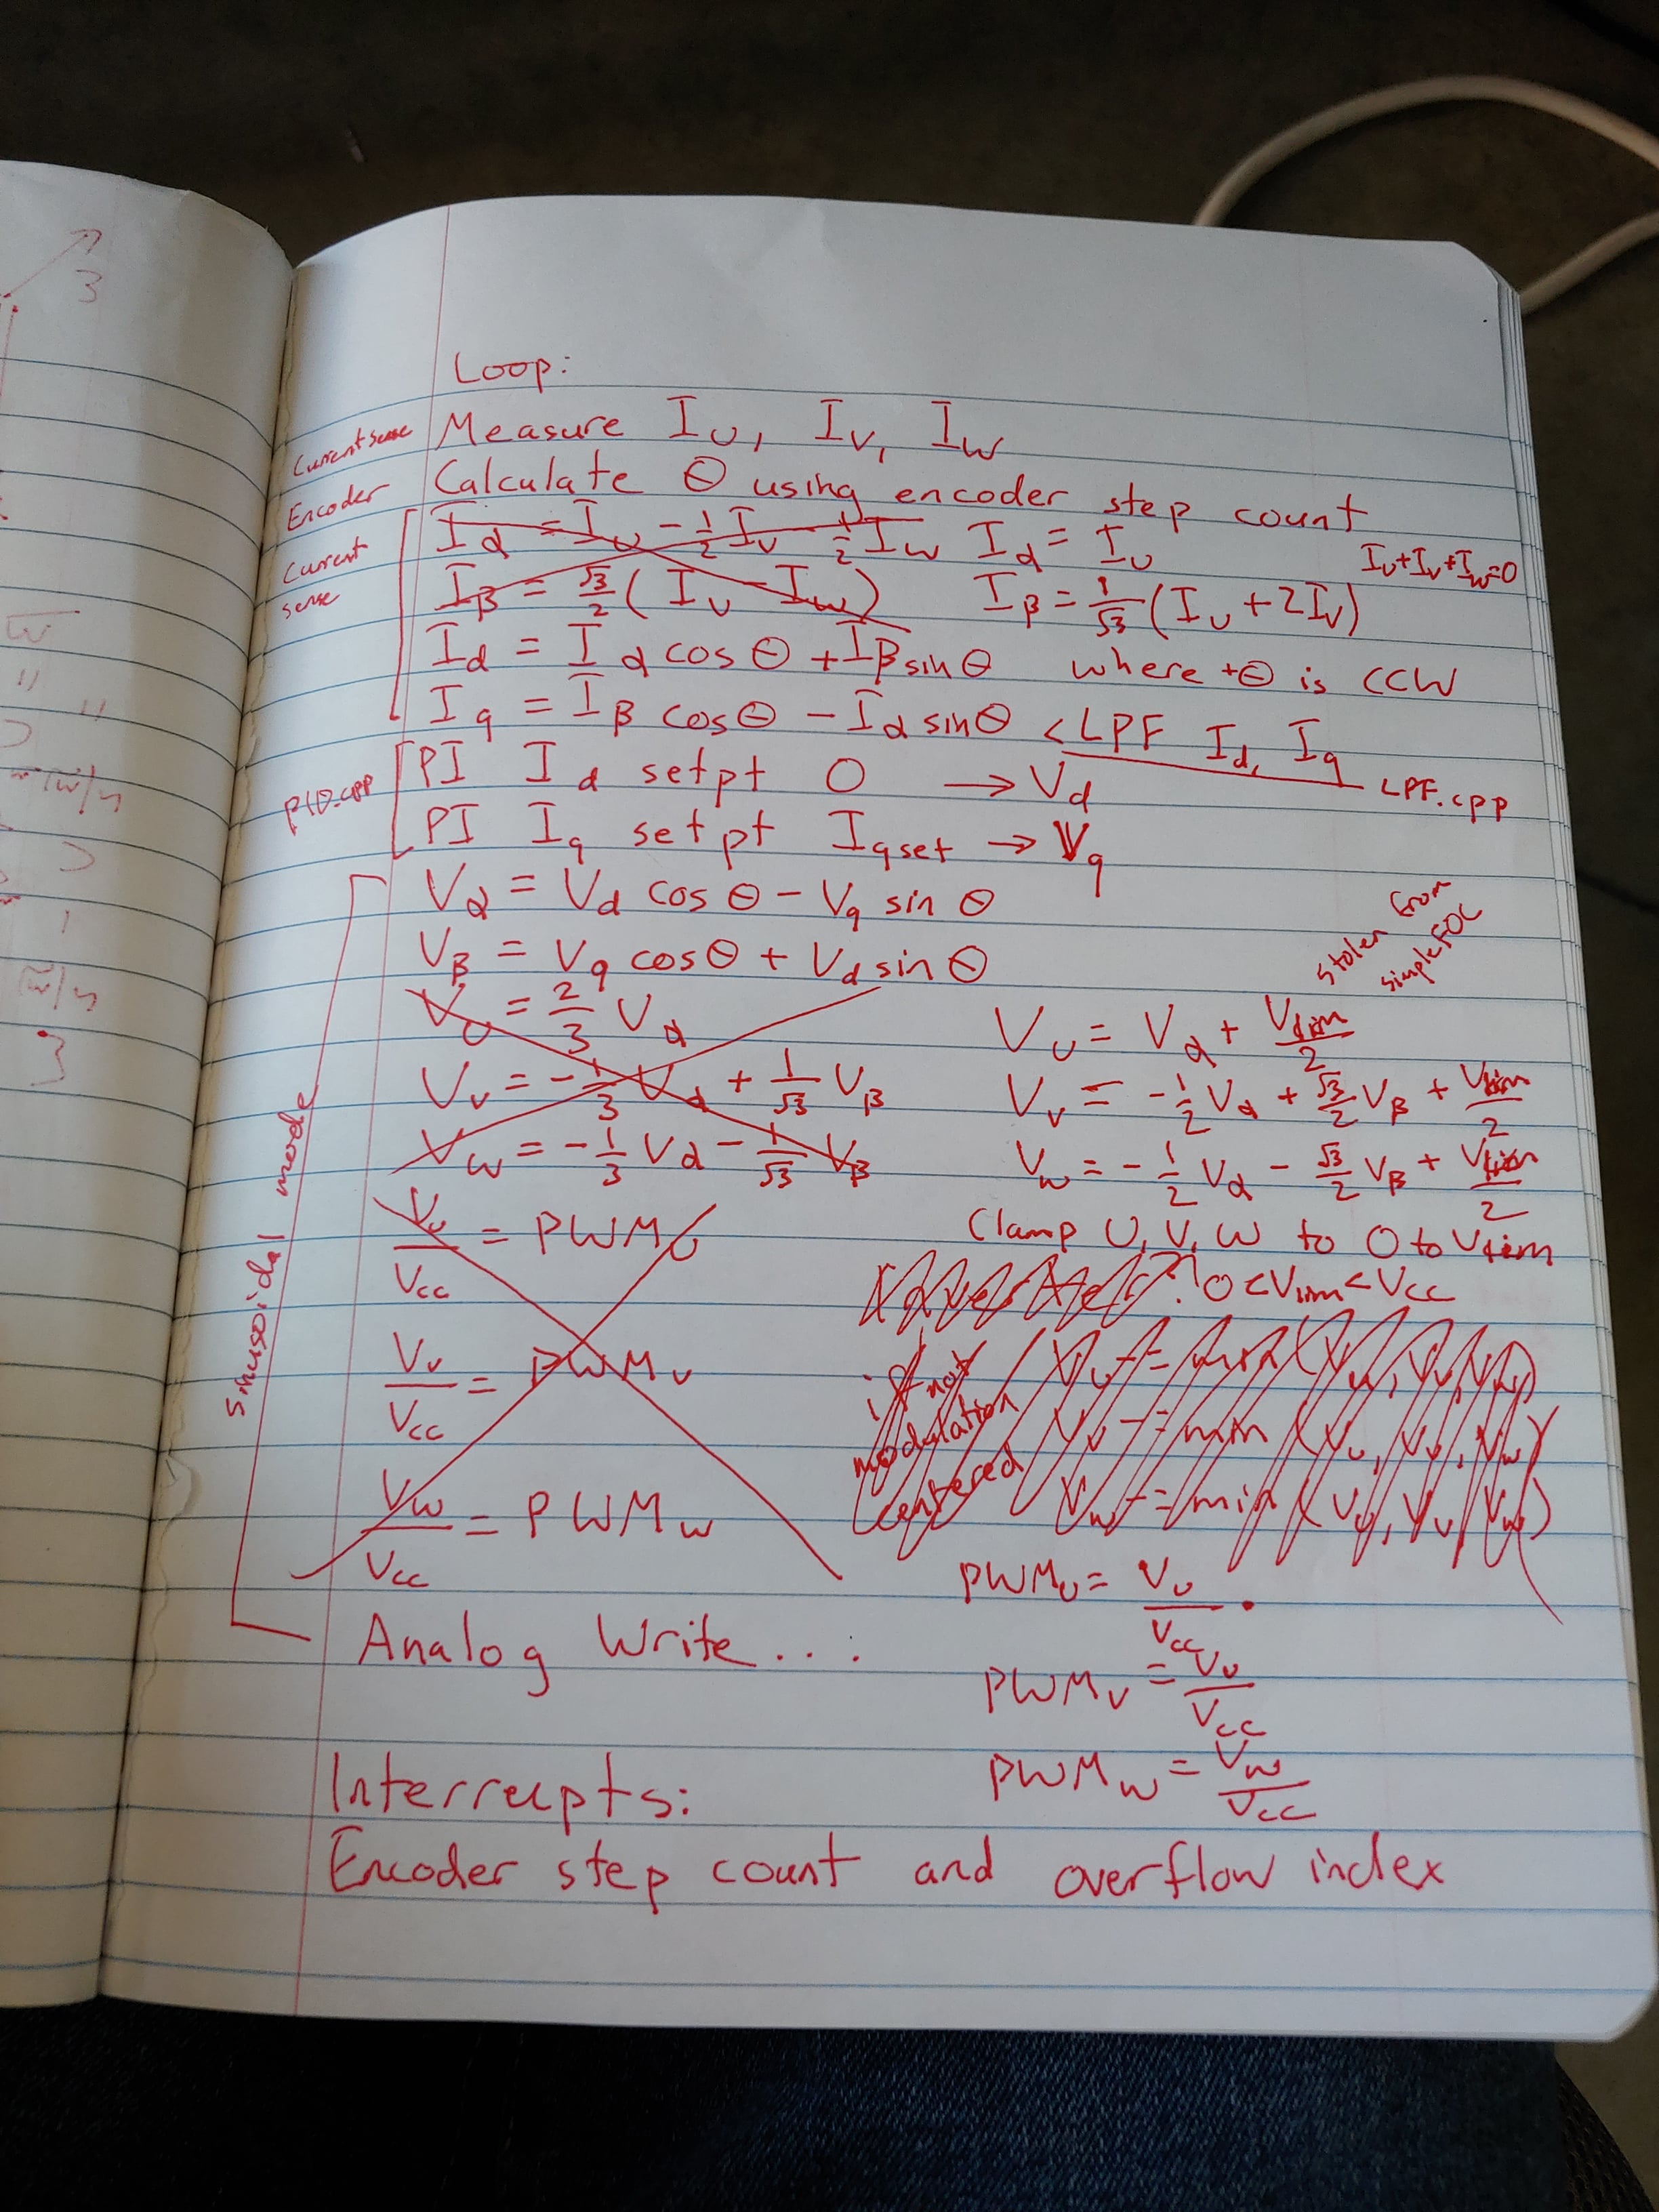 Loop:
Current sense Measure I_U, I_V, I_W
Encoder Calculate Θ using encoder step count
Current sense
I_α = I_U - 1/2 I_V - 1/2 I_W I_α = I_U
I_U+I_V+I_W=0
I_β = √3/2 (I_V - I_W) I_β = 1/√3 (I_U + 2I_V)
I_d = I_α cos Θ + I_β sin Θ where +Θ is CCW
I_q = I_β cos Θ - I_α sin Θ < LPF I_d, I_q LPF.cpp
PID.cpp
PI I_d setpt 0 → V_d
PI I_q setpt I_qset → V_q
sinusoidal mode
V_α = V_d cos Θ - V_q sin Θ
V_β = V_q cos Θ + V_d sin Θ
stolen from
simpleFOC
V_U = 2/3 V_α
V_V = -1/3 V_α + 1/√3 V_β
V_W = -1/3 V_α - 1/√3 V_β
V_U/V_CC = PWM_U
V_V/V_CC = PWM_V
V_W/V_CC = PWM_W
V_U = V_α + V_lim/2
V_V = -1/2 V_α + √3/2 V_β + V_lim/2
V_W = -1/2 V_α - √3/2 V_β + V_lim/2
Clamp U, V, W to 0 to V_lim
0 < V_lim < V_CC
if not
modulation
centered
V_V -= min (V_U, V_V, V_W)
V_W -= min (V_U, V_V, V_W)
PWM_U = V_U/V_CC
PWM_V = V_V/V_CC
PWM_W = V_W/V_CC
Analog Write...
Interrupts:
Encoder step count and overflow index